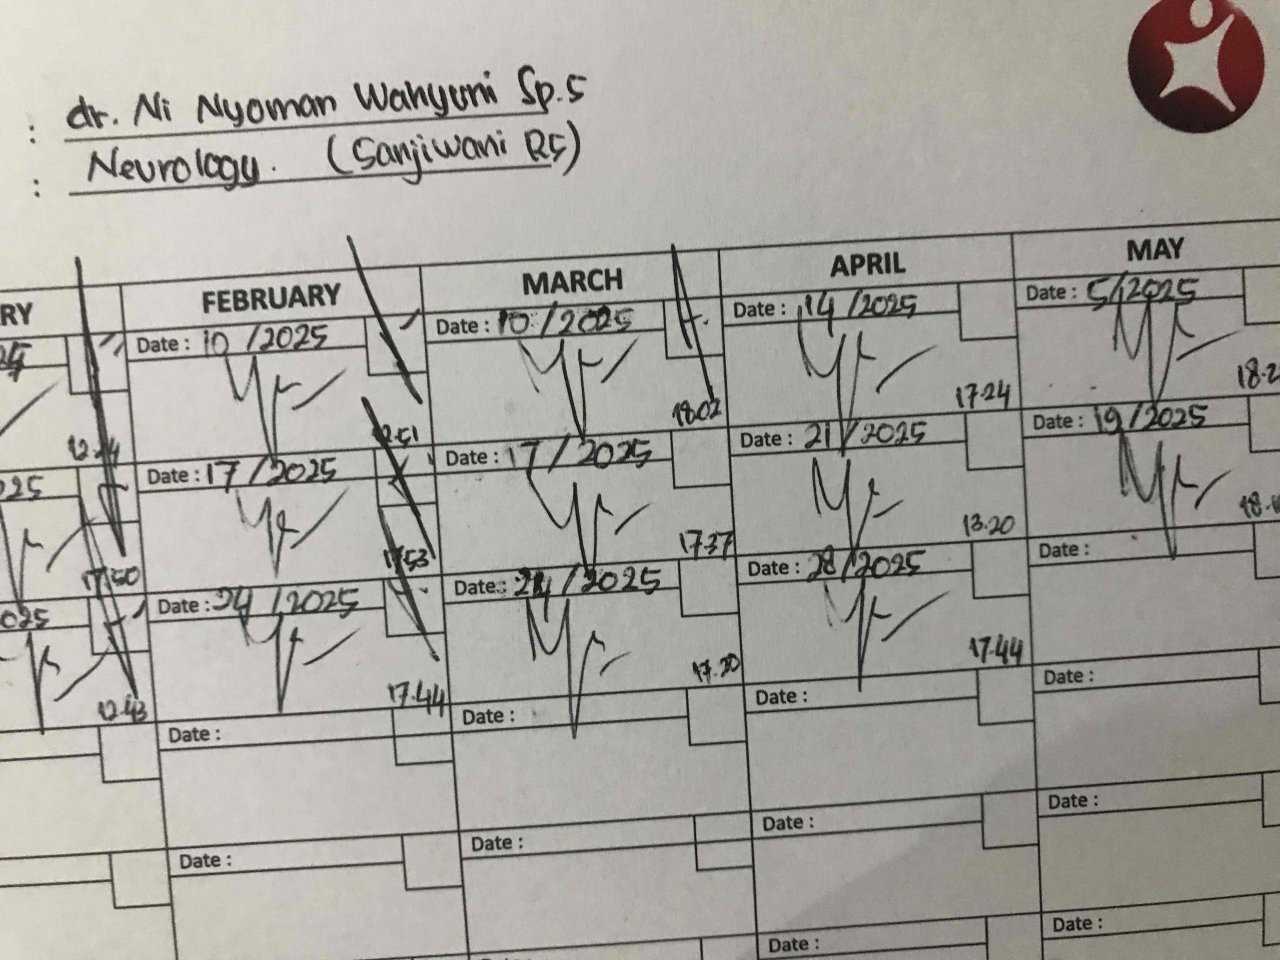 : dr. Ni Nyoman Wahyuni Sp.S
: Neurology. (Sanjiwani RS)
RY FEBRUARY MARCH APRIL MAY
Date : 10 /2025 Date : 10 /2025 Date : 14 /2025 Date : 5/2025
12.51 18.02 17.24 18.2
025 Date : 17 /2025 Date : 17 /2025 Date : 21 /2025 Date : 19/2025
17.50 17.53 17.37 13.20 18.
025 Date : 24 /2025 Date : 24 /2025 Date : 28/2025 Date :
12.43 17.44 17.30 17.44
Date : Date : Date : Date :
Date : Date : Date : Date :
Date : Date :